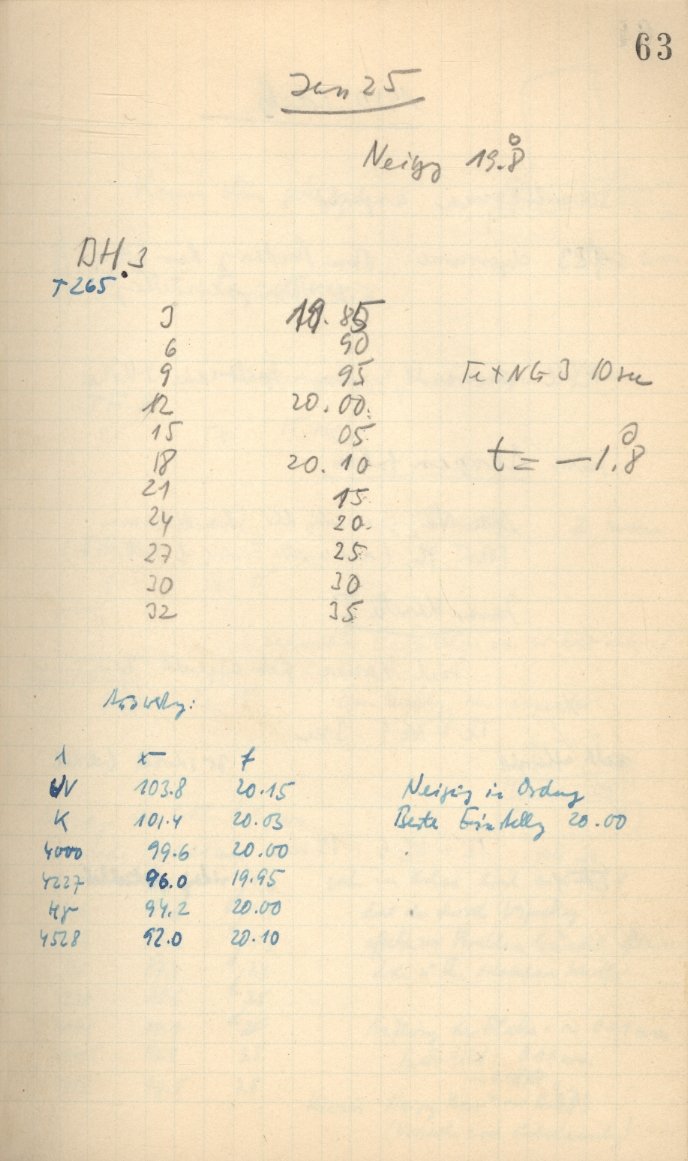 63
Jan 25
Neigg 19.8°
DH.3
T265
3 19.85
6 90
9 95
12 20.00
15 05
18 20.10
21 15
24 20
27 25
30 30
32 35
Fe+NG 3 10 sec
t = -1.8°
λ x f
UV 103.8 20.15
K 101.4 20.03
4000 99.6 20.00
4227 96.0 19.95
Hγ 94.2 20.00
4528 92.0 20.10
Neigg in Ordng
Beste Einstellg 20.00